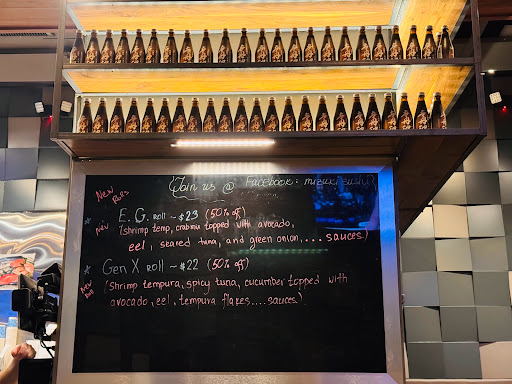 Join us @ Facebook: mizuki sushi
New Rolls
* E.G. ROLL ~ $23 (50% off)
New
(shrimp temp, crabmu topped with avocado,
eel, seared tuna, and green onion, ... sauces)
* Gen X ROLL ~ $22 (50% off)
New Roll
(shrimp tempura, spicy tuna, cucumber topped with
avocado, eel, tempura flakes....sauces)